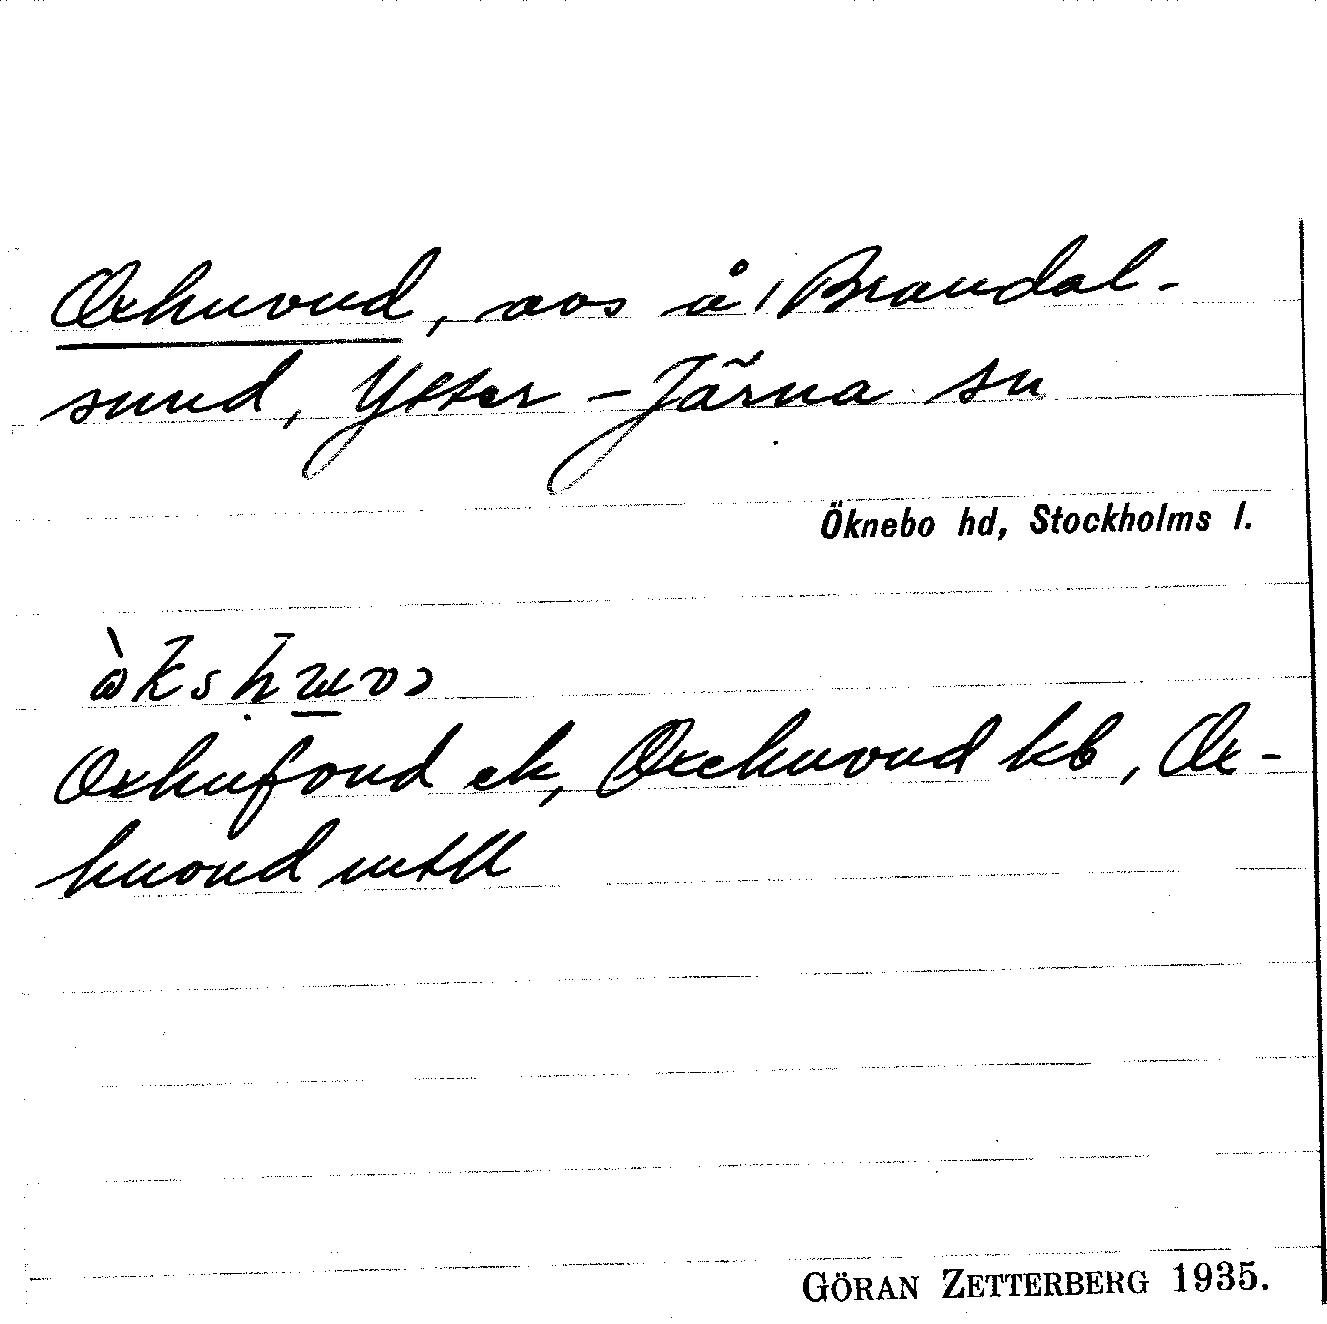 Oxhuvud, avs å Brandal-
sund, Ytter-Järna sn
Öknebo hd, Stockholms l.
Oxhufvud ek, Oxehuvud kb, Ox-
huvud mtll
GÖRAN ZETTERBERG 1935.